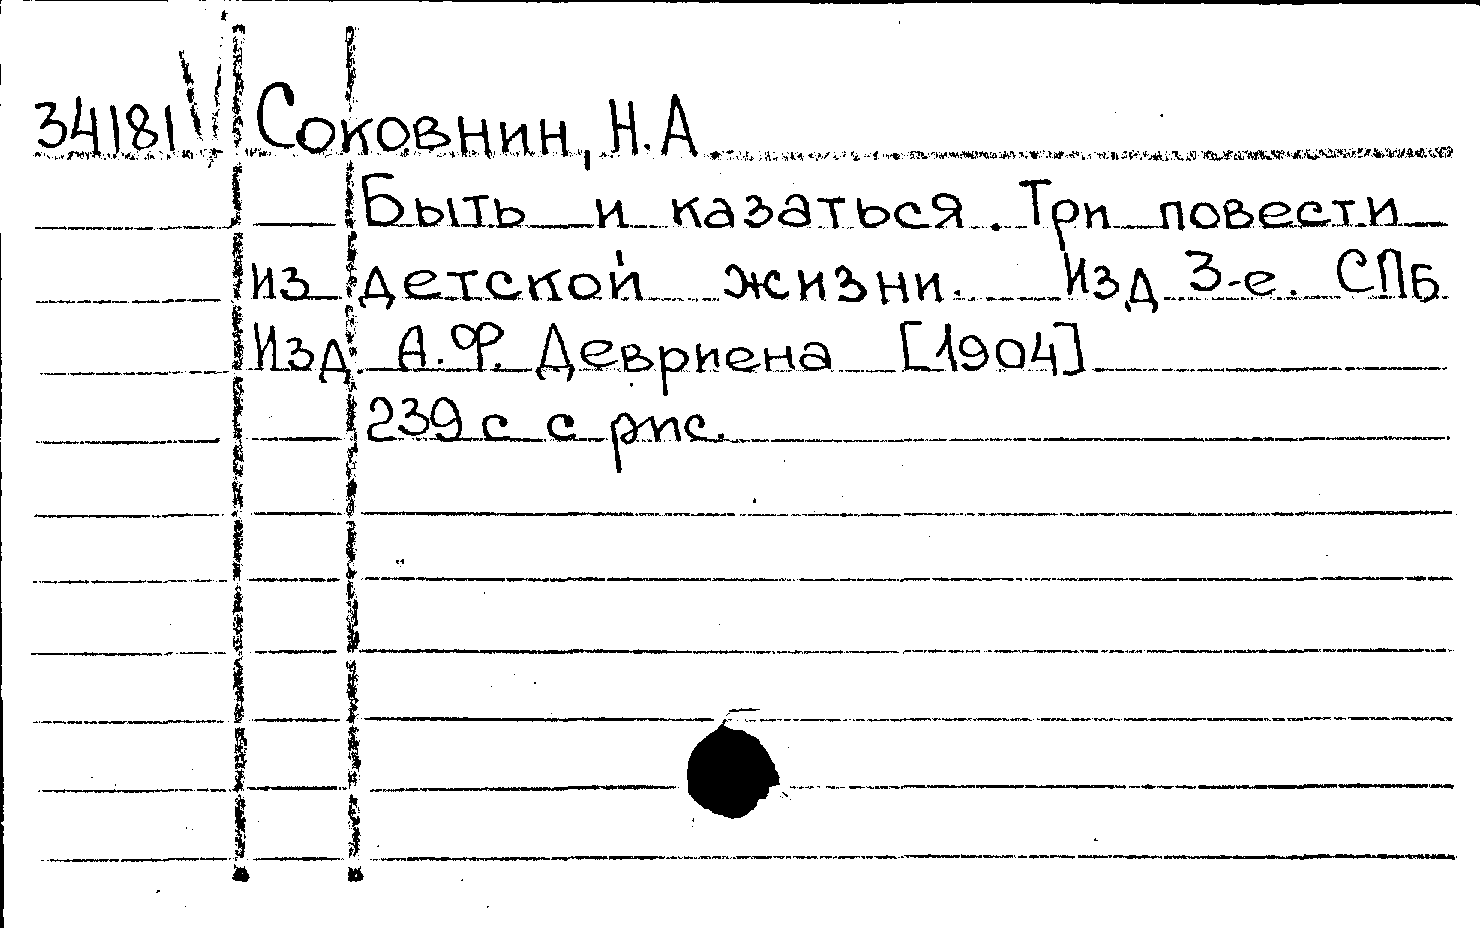 34181 Соковнин, Н.А
Быть и казаться. Три повести
из детской жизни. Изд 3-е. СПБ
Изд. А.Ф. Девриена [1904]
239 с с рис.